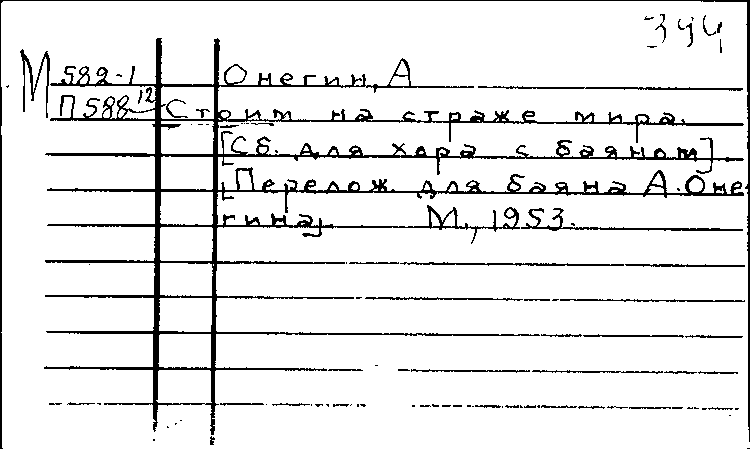 344
М 582-1 Онегин, А
П588 12 Стоим на страже мира.
[Сб. для хора с баяном].
[Перелож. для баяна А. Оне-
гина]. М., 1953.